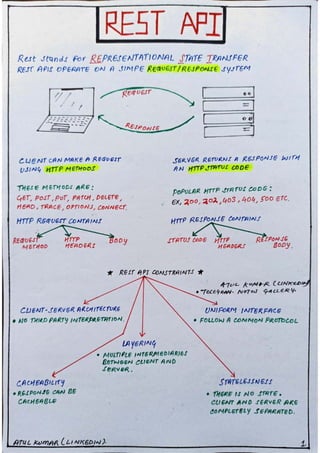 REST API
Rest stands for REPRESENTATIONAL STATE TRANSFER
REST APIS OPERATE ON A SIMPE REQUEST/RESPONSE SYSTEM
REQUEST
RESPONSE
CLIENT CAN MAKE A REQUEST
USING HTTP METHODS
THESE METHODS ARE:
GET, POST, PUT, PATCH, DELETE,
HEAD, TRACE, OPTIONS, CONNECT.
HTTP REQUEST CONTAINS
REQUEST METHOD
HTTP HEADERS
BODY
SERVER RETURNS A RESPONSE WITH
AN HTTP STATUS CODE
POPULAR HTTP STATUS CODE:
EX, 200, 202, 403, 404, 500 ETC.
HTTP RESPONSE CONTAINS
STATUS CODE
HTTP HEADERS
RESPONSE BODY.
★ REST API CONSTRAINTS ★
ATUL KUMAR (LINKEDIN)
• TELEGRAM - NOTES GALLERY.
CLIENT-SERVER ARCHITECTURE
• NO THIRD PARTY INTERPRETATION.
UNIFORM INTERFACE
• FOLLOW A COMMON PROTOCOL
LAYERING
• MULTIPLE INTERMEDIARIES
BETWEEN CLIENT AND
SERVER.
CACHEABILITY
• RESPONSE CAN BE
CACHEABLE
STATELESSNESS
• THERE IS NO STATE.
CLIENT AND SERVER ARE
COMPLETELY SEPARATED.
ATUL KUMAR (LINKEDIN)
1